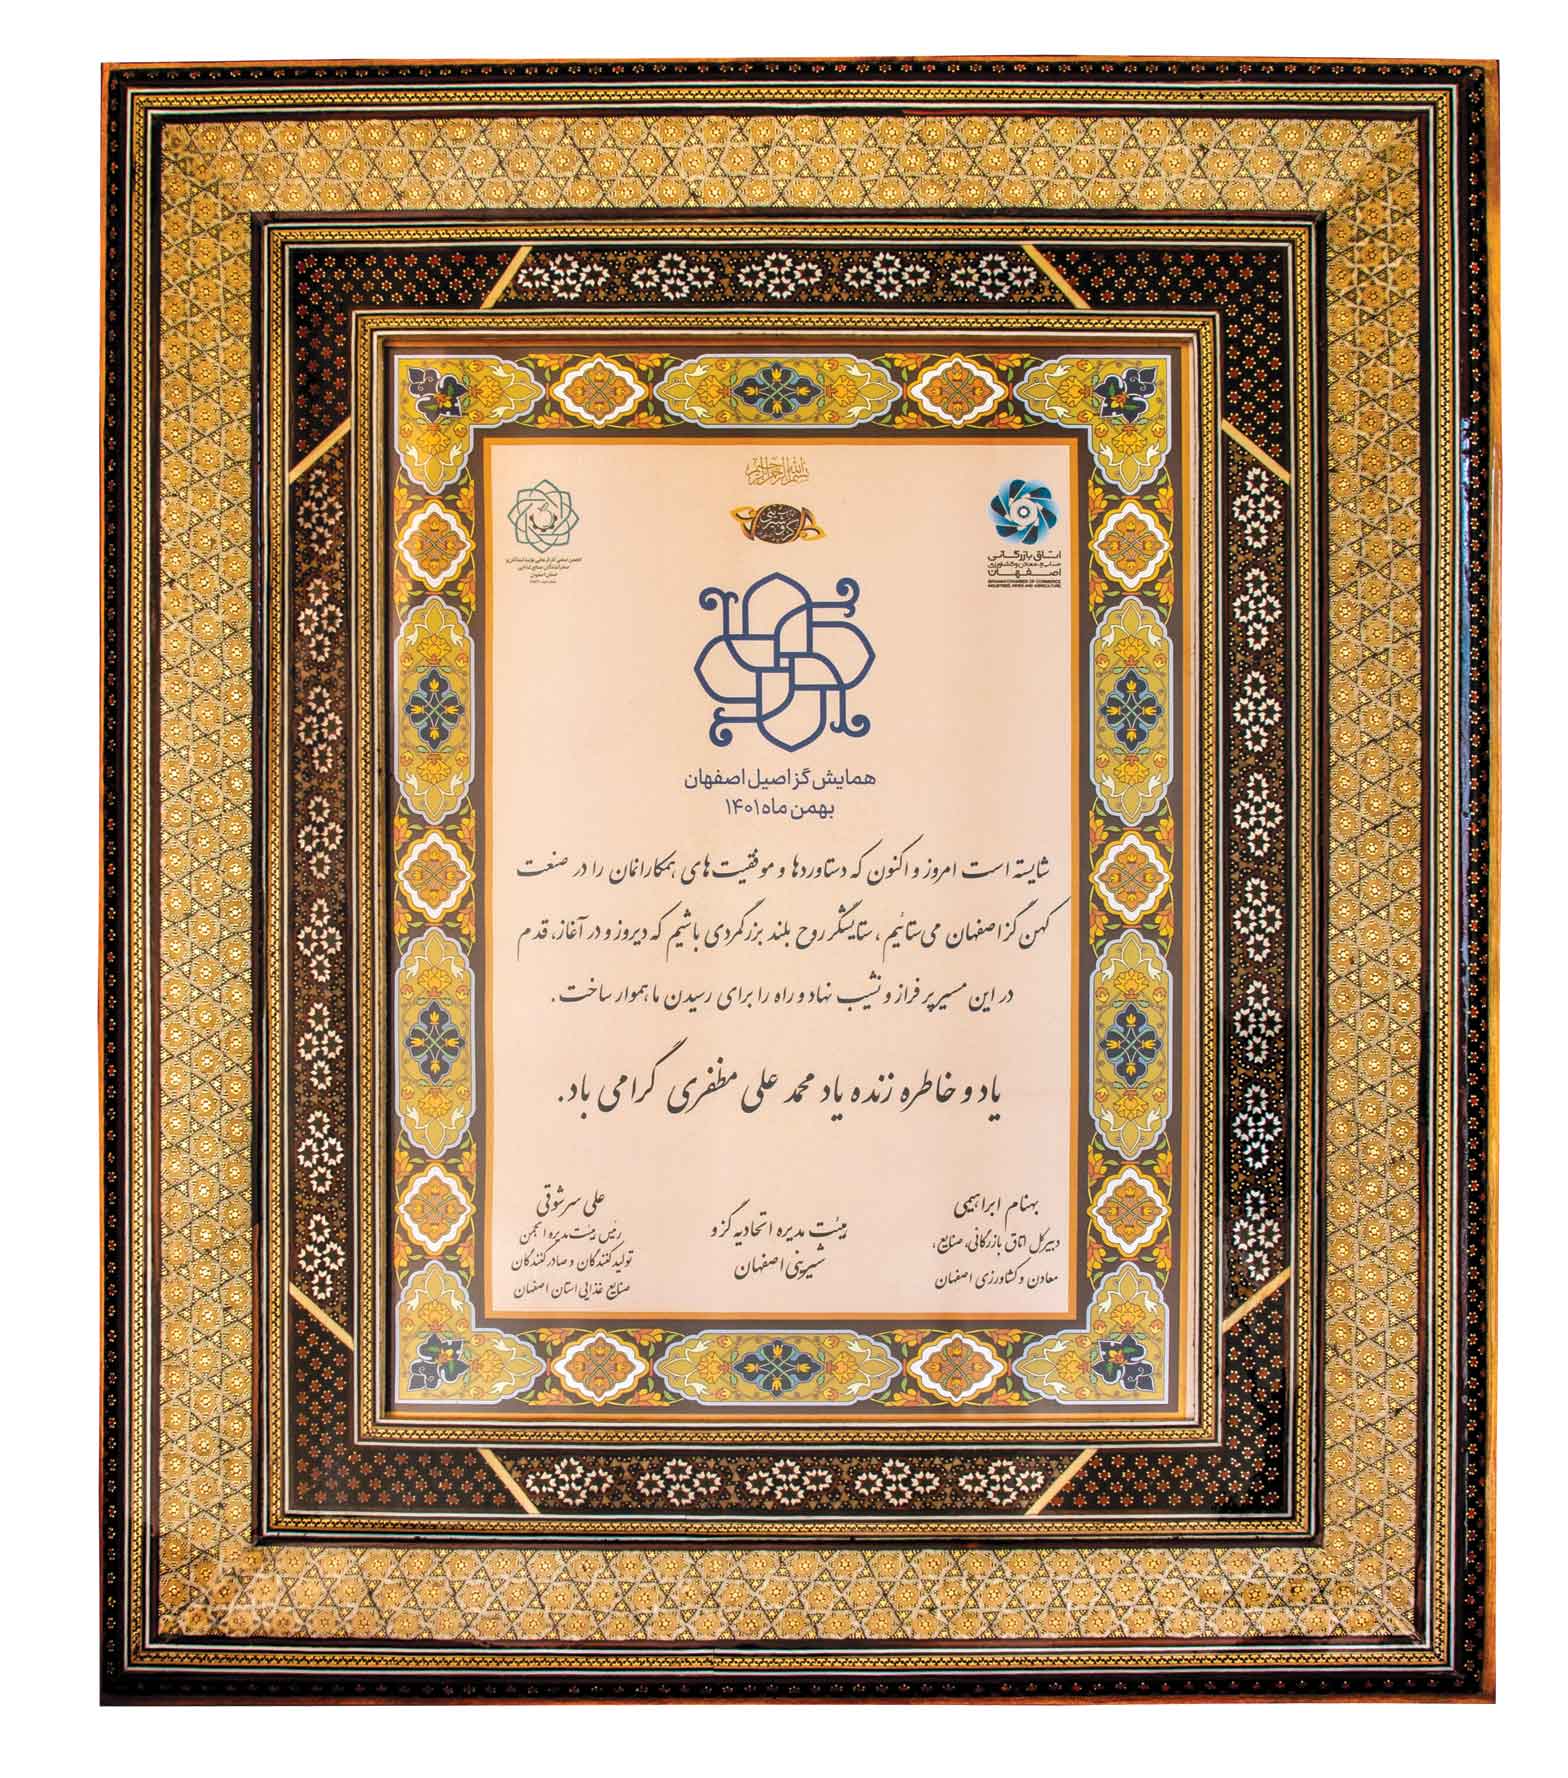 بسم الله الرحمن الرحیم
اتاق بازرگانی
صنایع، معادن و کشاورزی
اصفهان
ISFAHAN CHAMBER OF COMMERCE
INDUSTRIES, MINES AND AGRICULTURE
انجمن صنفی کارفرمایی تولیدکنندگان و
صادرکنندگان صنایع غذایی
استان اصفهان
همایش گز اصیل اصفهان
بهمن ماه ۱۴۰۱
شایسته است امروز و اکنون که دستاوردها و موفقیت های همکارانمان را در صنعت
کهن گز اصفهان می‌ستائیم، ستایشگر روح بلند بزرگمردی باشیم که دیروز و در آغاز، قدم
در این مسیر پر فراز و نشیب نهاد و راه را برای رسیدن ما هموار ساخت.
یاد و خاطره زنده یاد محمد علی مظفری گرامی باد.
بهنام ابراهیمی
دبیرکل اتاق بازرگانی، صنایع،
معادن و کشاورزی اصفهان
هیئت مدیره اتحادیه گز و
شیرینی اصفهان
علی سرشوقی
رئیس هیئت مدیره انجمن
تولیدکنندگان و صادرکنندگان
صنایع غذایی استان اصفهان